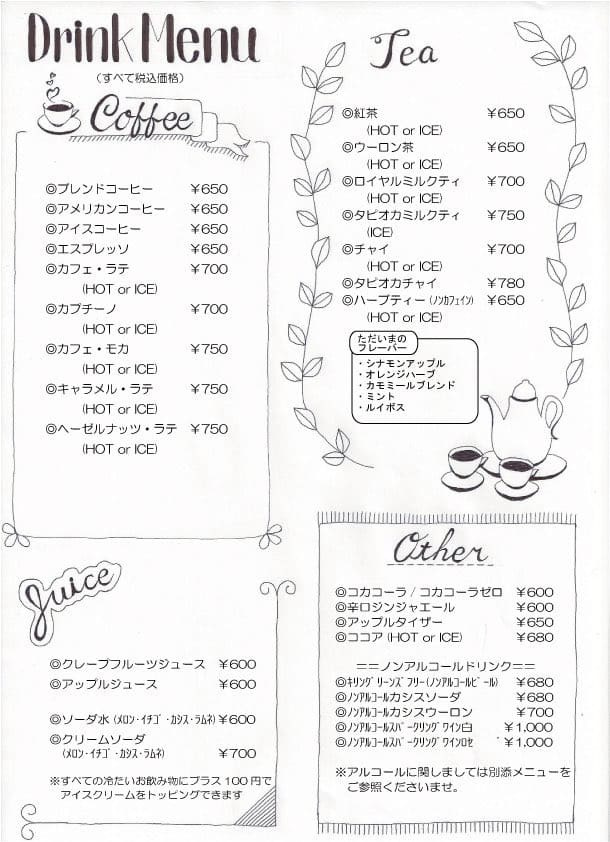 Drink Menu
（すべて税込価格）
Coffee
◎ブレンドコーヒー ￥650
◎アメリカンコーヒー ￥650
◎アイスコーヒー ￥650
◎エスプレッソ ￥650
◎カフェ・ラテ ￥700
(HOT or ICE)
◎カプチーノ ￥700
(HOT or ICE)
◎カフェ・モカ ￥750
(HOT or ICE)
◎キャラメル・ラテ ￥750
(HOT or ICE)
◎ヘーゼルナッツ・ラテ ￥750
(HOT or ICE)
Tea
◎紅茶 ￥650
(HOT or ICE)
◎ウーロン茶 ￥650
(HOT or ICE)
◎ロイヤルミルクティ ￥700
(HOT or ICE)
◎タピオカミルクティ ￥750
(ICE)
◎チャイ ￥700
(HOT or ICE)
◎タピオカチャイ ￥780
◎ハーブティー (ﾉﾝｶﾌｪｲﾝ) ￥650
(HOT or ICE)
ただいまの
フレーバー
・シナモンアップル
・オレンジハーブ
・カモミールブレンド
・ミント
・ルイボス
Juice
◎グレープフルーツジュース ￥600
◎アップルジュース ￥600
◎ソーダ水 (ﾒﾛﾝ･ｲﾁｺﾞ･ｶｼｽ･ﾗﾑﾈ) ￥600
◎クリームソーダ
(ﾒﾛﾝ･ｲﾁｺﾞ･ｶｼｽ･ﾗﾑﾈ) ￥700
※すべての冷たいお飲み物にプラス100円で
アイスクリームをトッピングできます
Other
◎コカコーラ / コカコーラゼロ ￥600
◎辛口ジンジャエール ￥600
◎アップルタイザー ￥650
◎ココア (HOT or ICE) ￥680
==ノンアルコールドリンク==
◎ｷﾘﾝｸﾞﾘｰﾝｽﾞﾌﾘｰ(ﾉﾝｱﾙｺｰﾙﾋﾞｰﾙ) ￥680
◎ﾉﾝｱﾙｺｰﾙカシスソーダ ￥680
◎ﾉﾝｱﾙｺｰﾙカシスウーロン ￥700
◎ﾉﾝｱﾙｺｰﾙｽﾊﾟｰｸﾘﾝｸﾞﾜｲﾝ白 ￥1,000
◎ﾉﾝｱﾙｺｰﾙｽﾊﾟｰｸﾘﾝｸﾞﾜｲﾝﾛｾﾞ ￥1,000
※アルコールに関しましては別添メニューを
ご参照くださいませ。